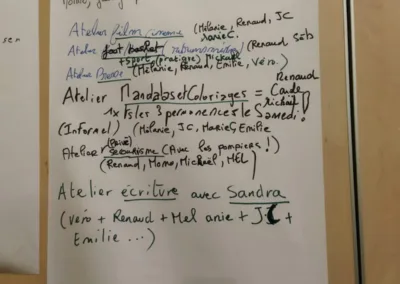 Atelier film/cinéma (Mélanie, Renaud, JC
MarieC.
Atelier foot/basket / (Renaud, Séb
+ sport (pratique) Mickaël
Atelier (Mélanie, Renaud, Emilie, Véro.)
Atelier Mandalas et Coloriages = Renaud
Carole
Mickaël
1x ts les 3 permanences le Samedi!
(Informel) (Mélanie, JC, MarieC, Emilie
Atelier secourisme (Avec les pompiers!)
(Renaud, Momo, Mickaël, Mél)
Atelier écriture avec Sandra
(véro + Renaud + Mel anie + JC +
Emilie ...)